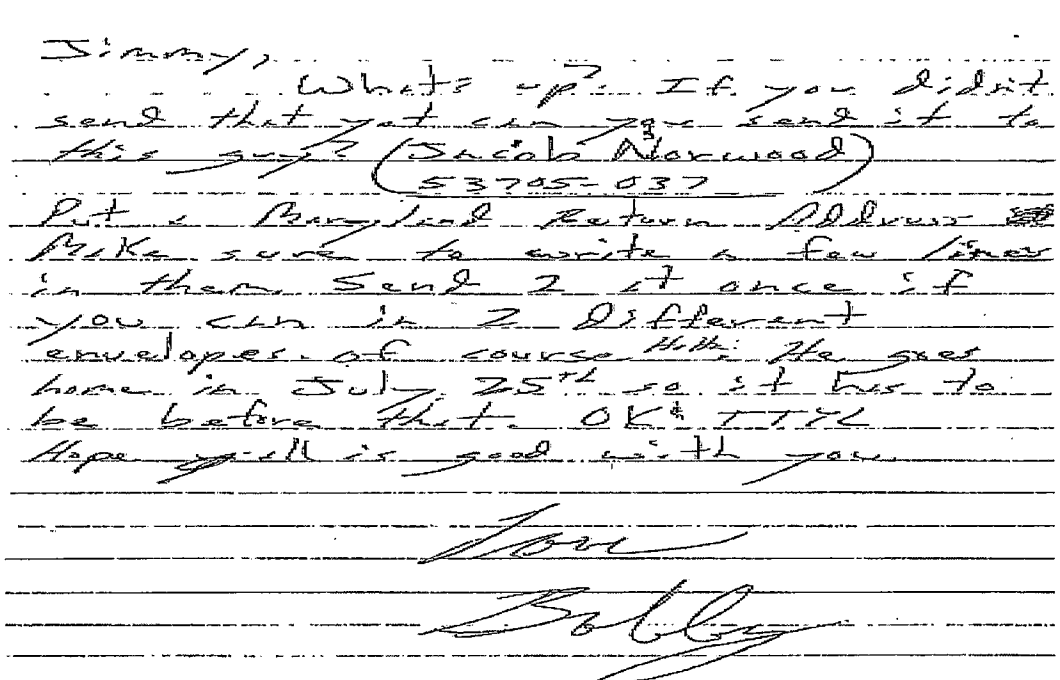 Jimmy,
Whats up? If you didn't
send that yet can you send it to
this guy? (Jacob Norwood)
53705-037
Put a Maryland Return Address
Make sure to write a few lines
in them. Send 2 at once if
you can in 2 different
envelopes. of course. He goes
home in July 25th so it has to
be before that. OK TTYL
Hope all is good with you.
Love
Bobby